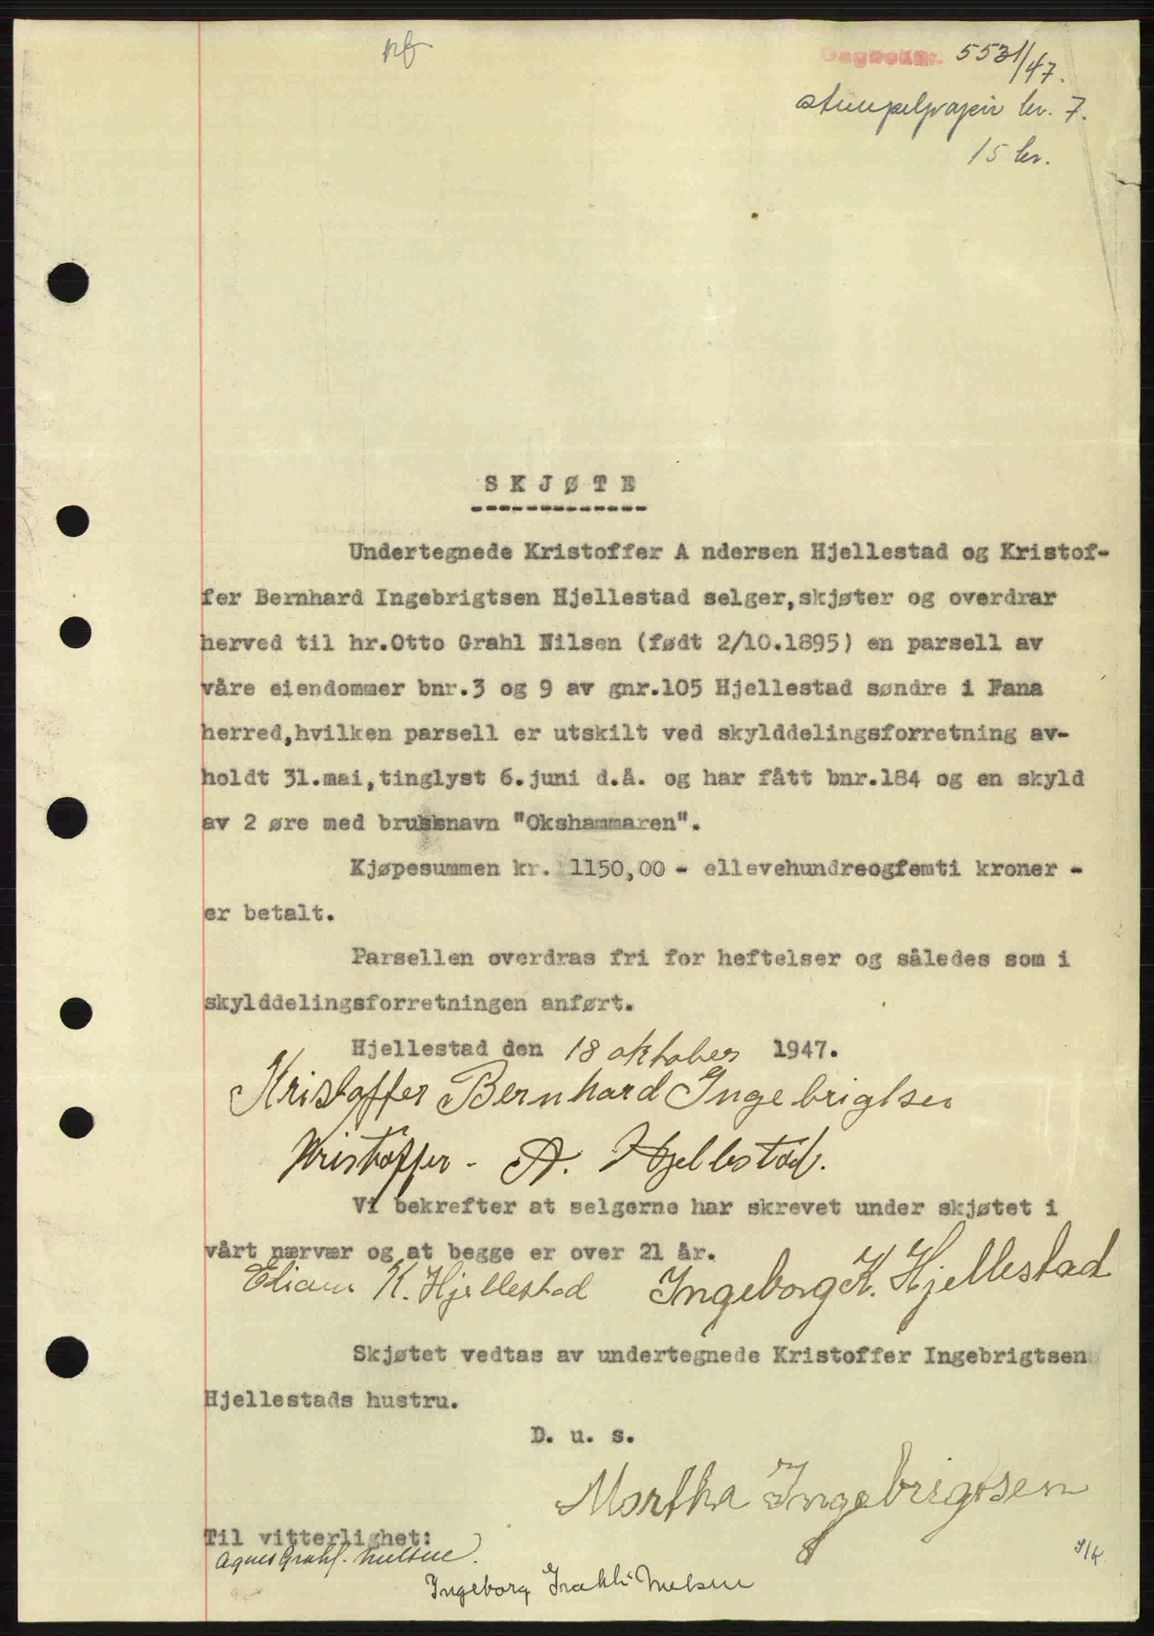 nb
Dagboknr. 5531/47.
stempelpapir kr. 7.
15 kr.
SKJØTE
Undertegnede Kristoffer A ndersen Hjellestad og Kristof-
fer Bernhard Ingebrigtsen Hjellestad selger,skjøter og overdrar
herved til hr.Otto Grahl Nilsen (født 2/10.1895) en parsell av
våre eiendommer bnr.3 og 9 av gnr.105 Hjellestad søndre i Fana
herred,hvilken parsell er utskilt ved skylddelingsforretning av-
holdt 31.mai,tinglyst 6.juni d.å. og har fått bnr.184 og en skyld
av 2 øre med bruksnavn "Okshammaren".
Kjøpesummen kr. 1150,00 - ellevehundreogfemti kroner -
er betalt.
Parsellen overdras fri for heftelser og således som i
skylddelingsforretningen anført.
Hjellestad den 18 oktober 1947.
Kristoffer Bernhard Ingebrigtsen
Kristoffer - A. Hjellestad.
Vi bekrefter at selgerne har skrevet under skjøtet i
vårt nærvær og at begge er over 21 år.
K. Hjellestad Ingeborg K. Hjellestad
Skjøtet vedtas av undertegnede Kristoffer Ingebrigtsen
Hjellestads hustru.
D. u. s.
Martha Ingebrigtsen
Til vitterlighet:
Agnes Grahl-Nielsen.
Ingeborg Grahl-Nielsen